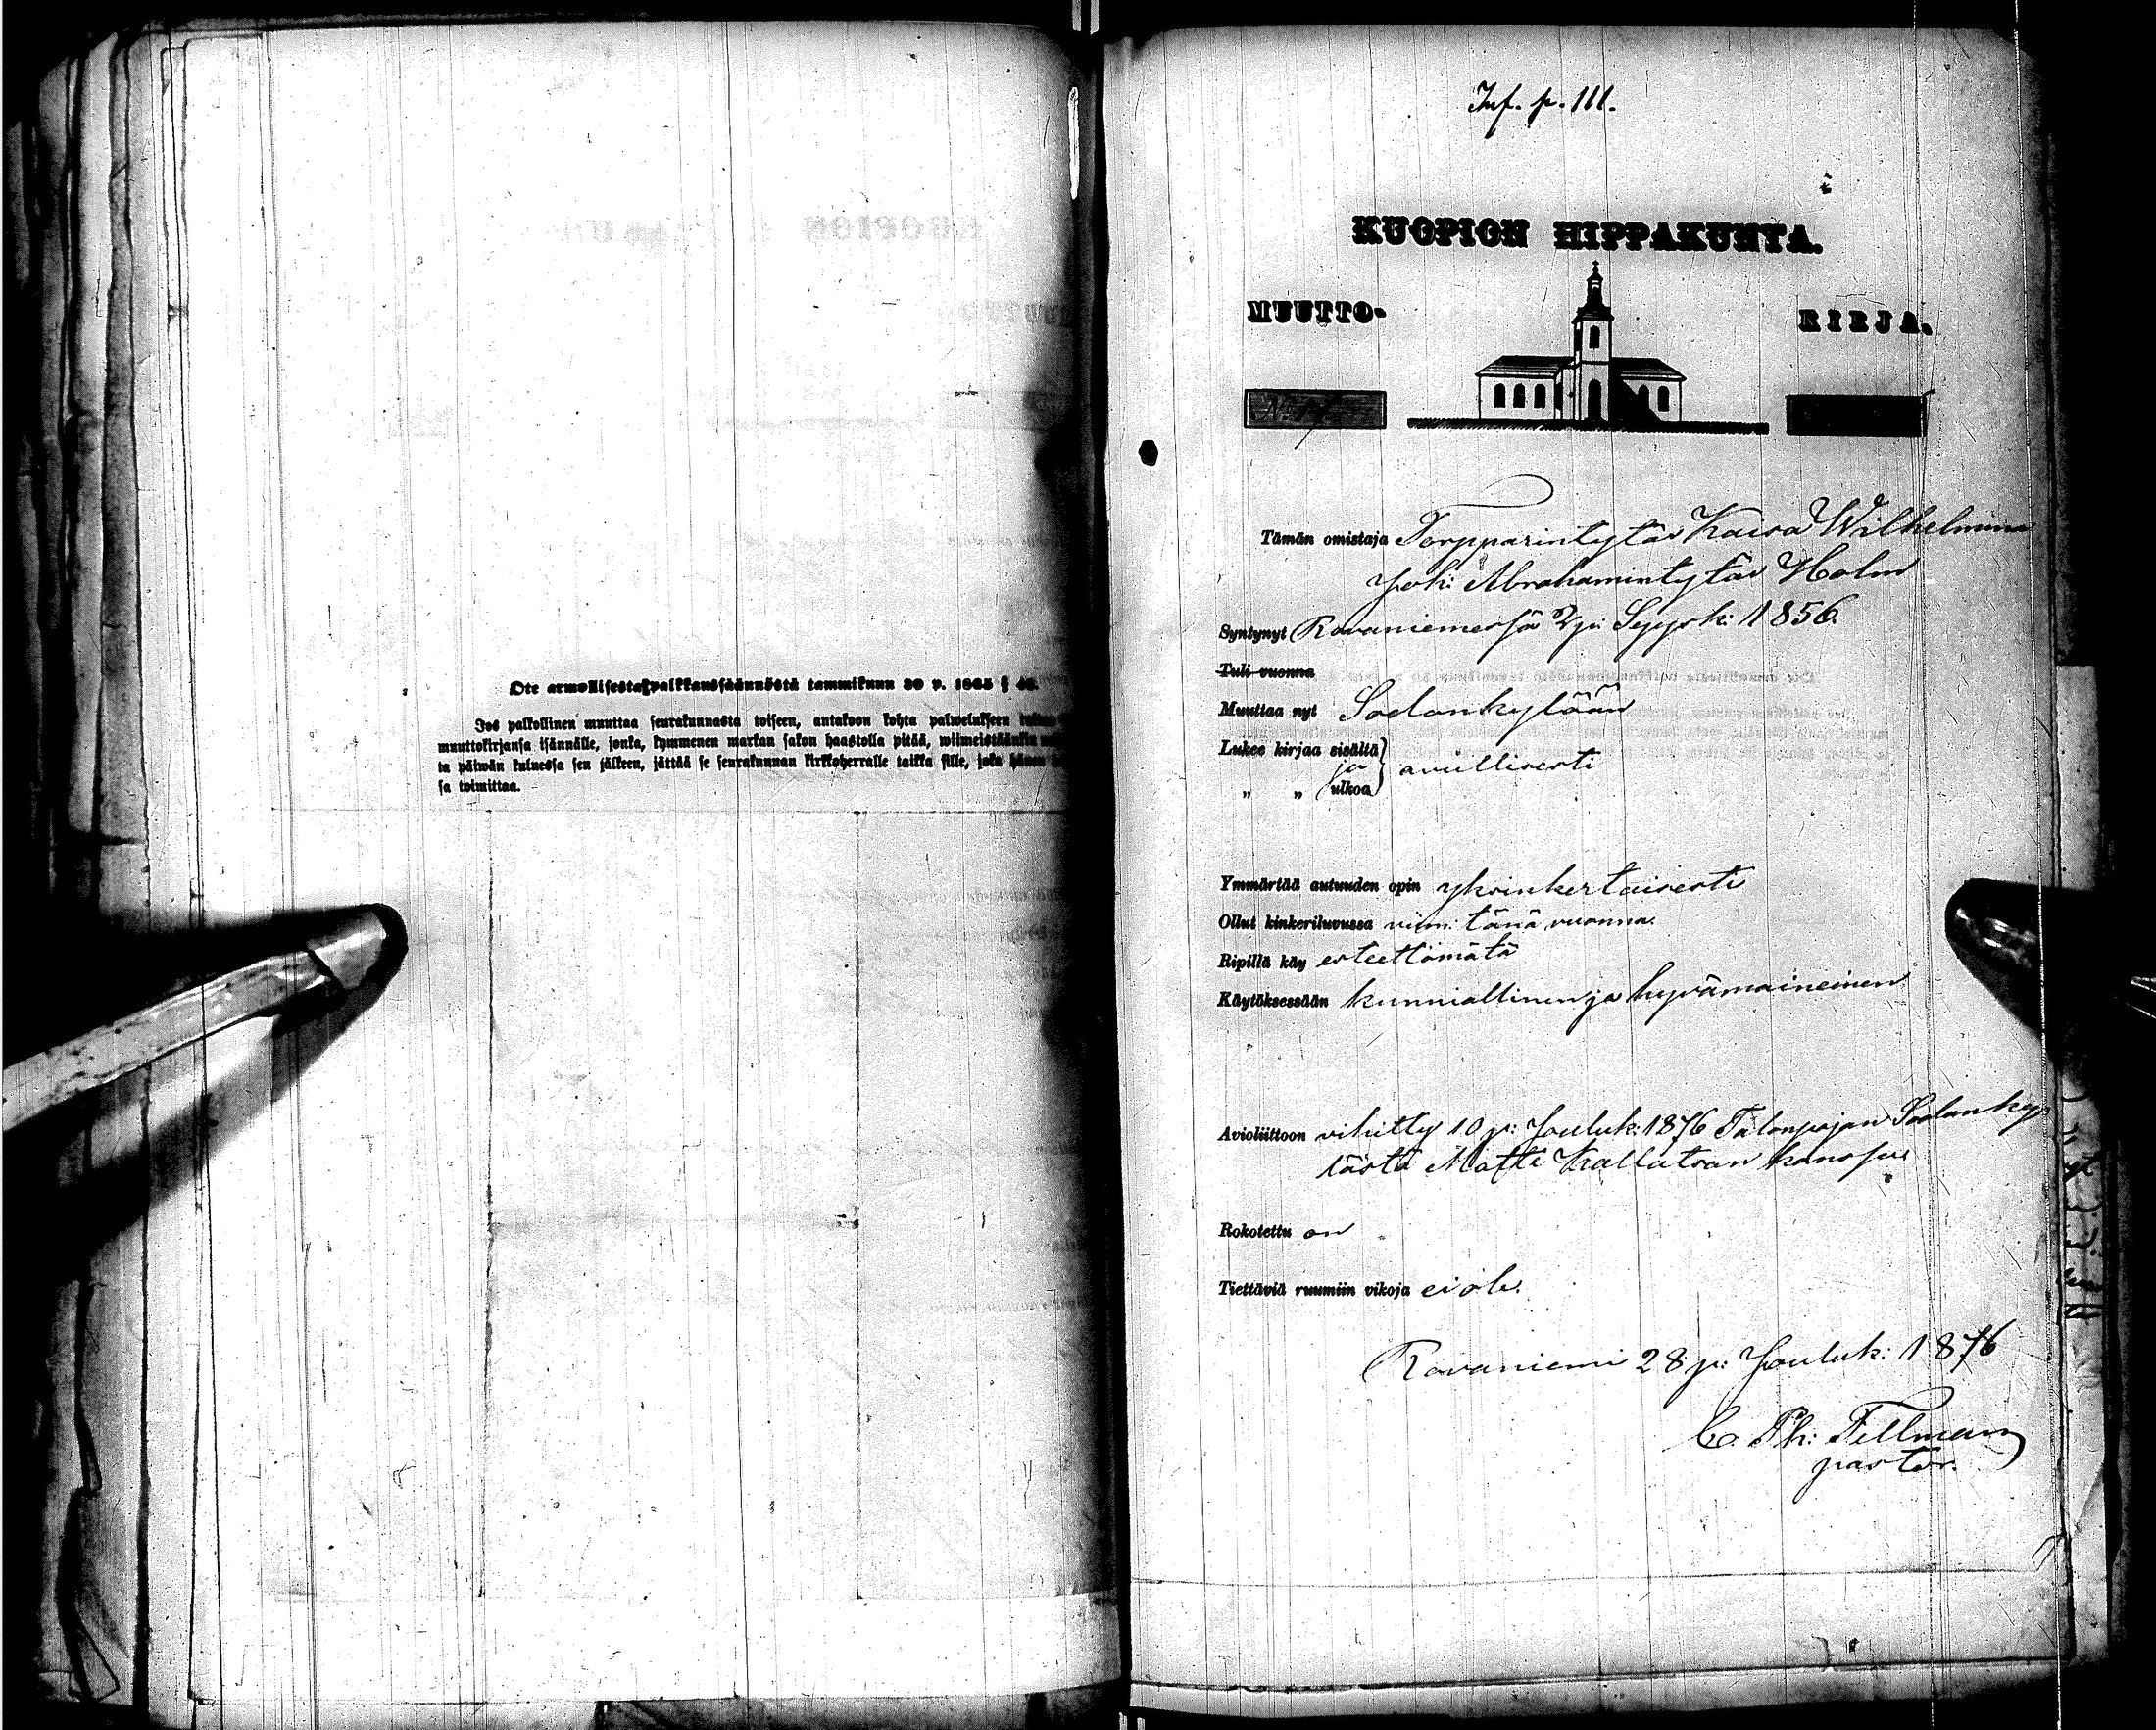 Ote armollisesta palkkaussäännöstä tammikunn 30 p. 1865 §
Jos palkollinen muuttaa seurakunnasta toiseen, antakoon kohta palwelukseen
muuttokirjansa isännälle, jonka, kymmenen markan sakon haastolla pitää, wiimeistäänkin
ta päiwän kuluessa sen jälkeen, jättää se seurakunnan kirkkoherralle taikka sille, joka
sa toimittaa.
Inf. p. 111.
KUOPION HIPPAKUNTA.
MUUTTO- KIRJA.
Tämän omistaja Torpparintytär Kaisa Wilhelmina
Joh: Abrahamintytär Holm
Syntynyt Rovaniemessä 2 p: Syysk: 1856.
Tuli vuonna
Muuttaa nyt Sodankylään
Lukee kirjaa sisältä
ja avullisesti
„ „ ulkoa
Ymmärtää autuuden opin yksinkertaisesti
Ollut kinkeriluvussa viim: tänä vuonna.
Ripillä käy esteettömätä
Käytöksessään kunniallinen ja hyvämaineinen
Avioliittoon vihitty 10 p: Jouluk: 1876 Talonpojan Sodanky-
lästä Matti Kallatsan kanssa
Rokotettu on
Tiettäviä ruumiin vikoja ei ole.
Rovaniemi 28 p: Jouluk: 1876
C. Ph: Fellman
pastor.